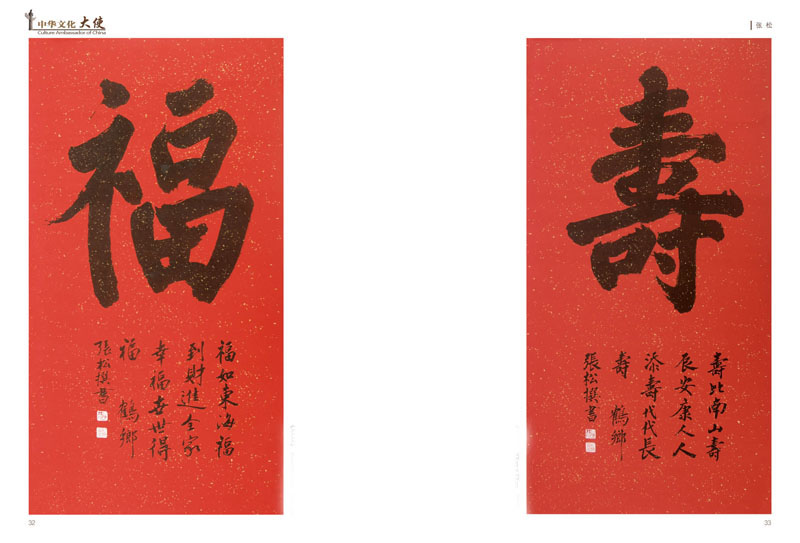 中华文化大使
Culture Ambassador of China
张 松
福
福如東海福
到財進全家
幸福安世得
福 鶴鄉
張松撰書
壽
壽比南山壽
辰安康人人
添壽代代長
壽 鶴鄉
張松撰書
32
33